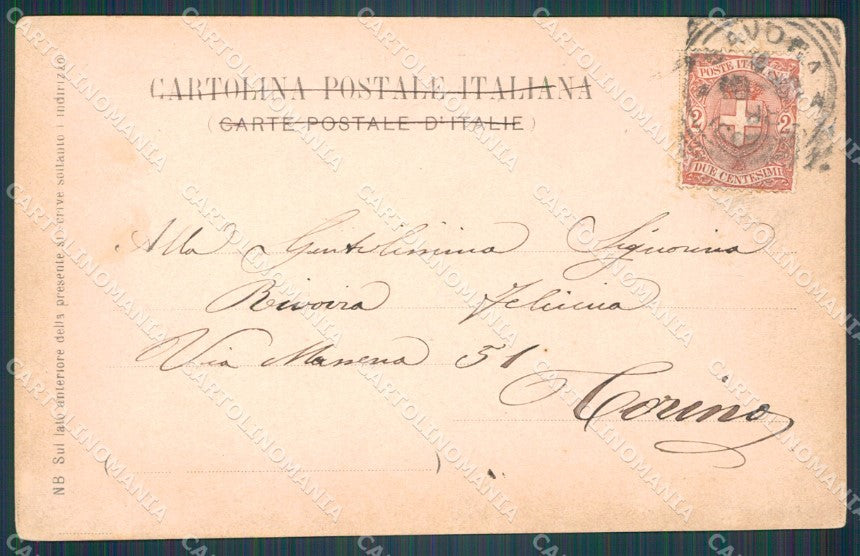 CARTOLINA POSTALE ITALIANA
(CARTE POSTALE D'ITALIE)
POSTE ITALIANE
2 2
DUE CENTESIMI
Alla Gentilissima Signorina
Rivoira Felicina
Via Massena 51
Torino
( )
NB Sul lato anteriore della presente si scrive soltanto l'indirizzo
CARTOLINOMANIA